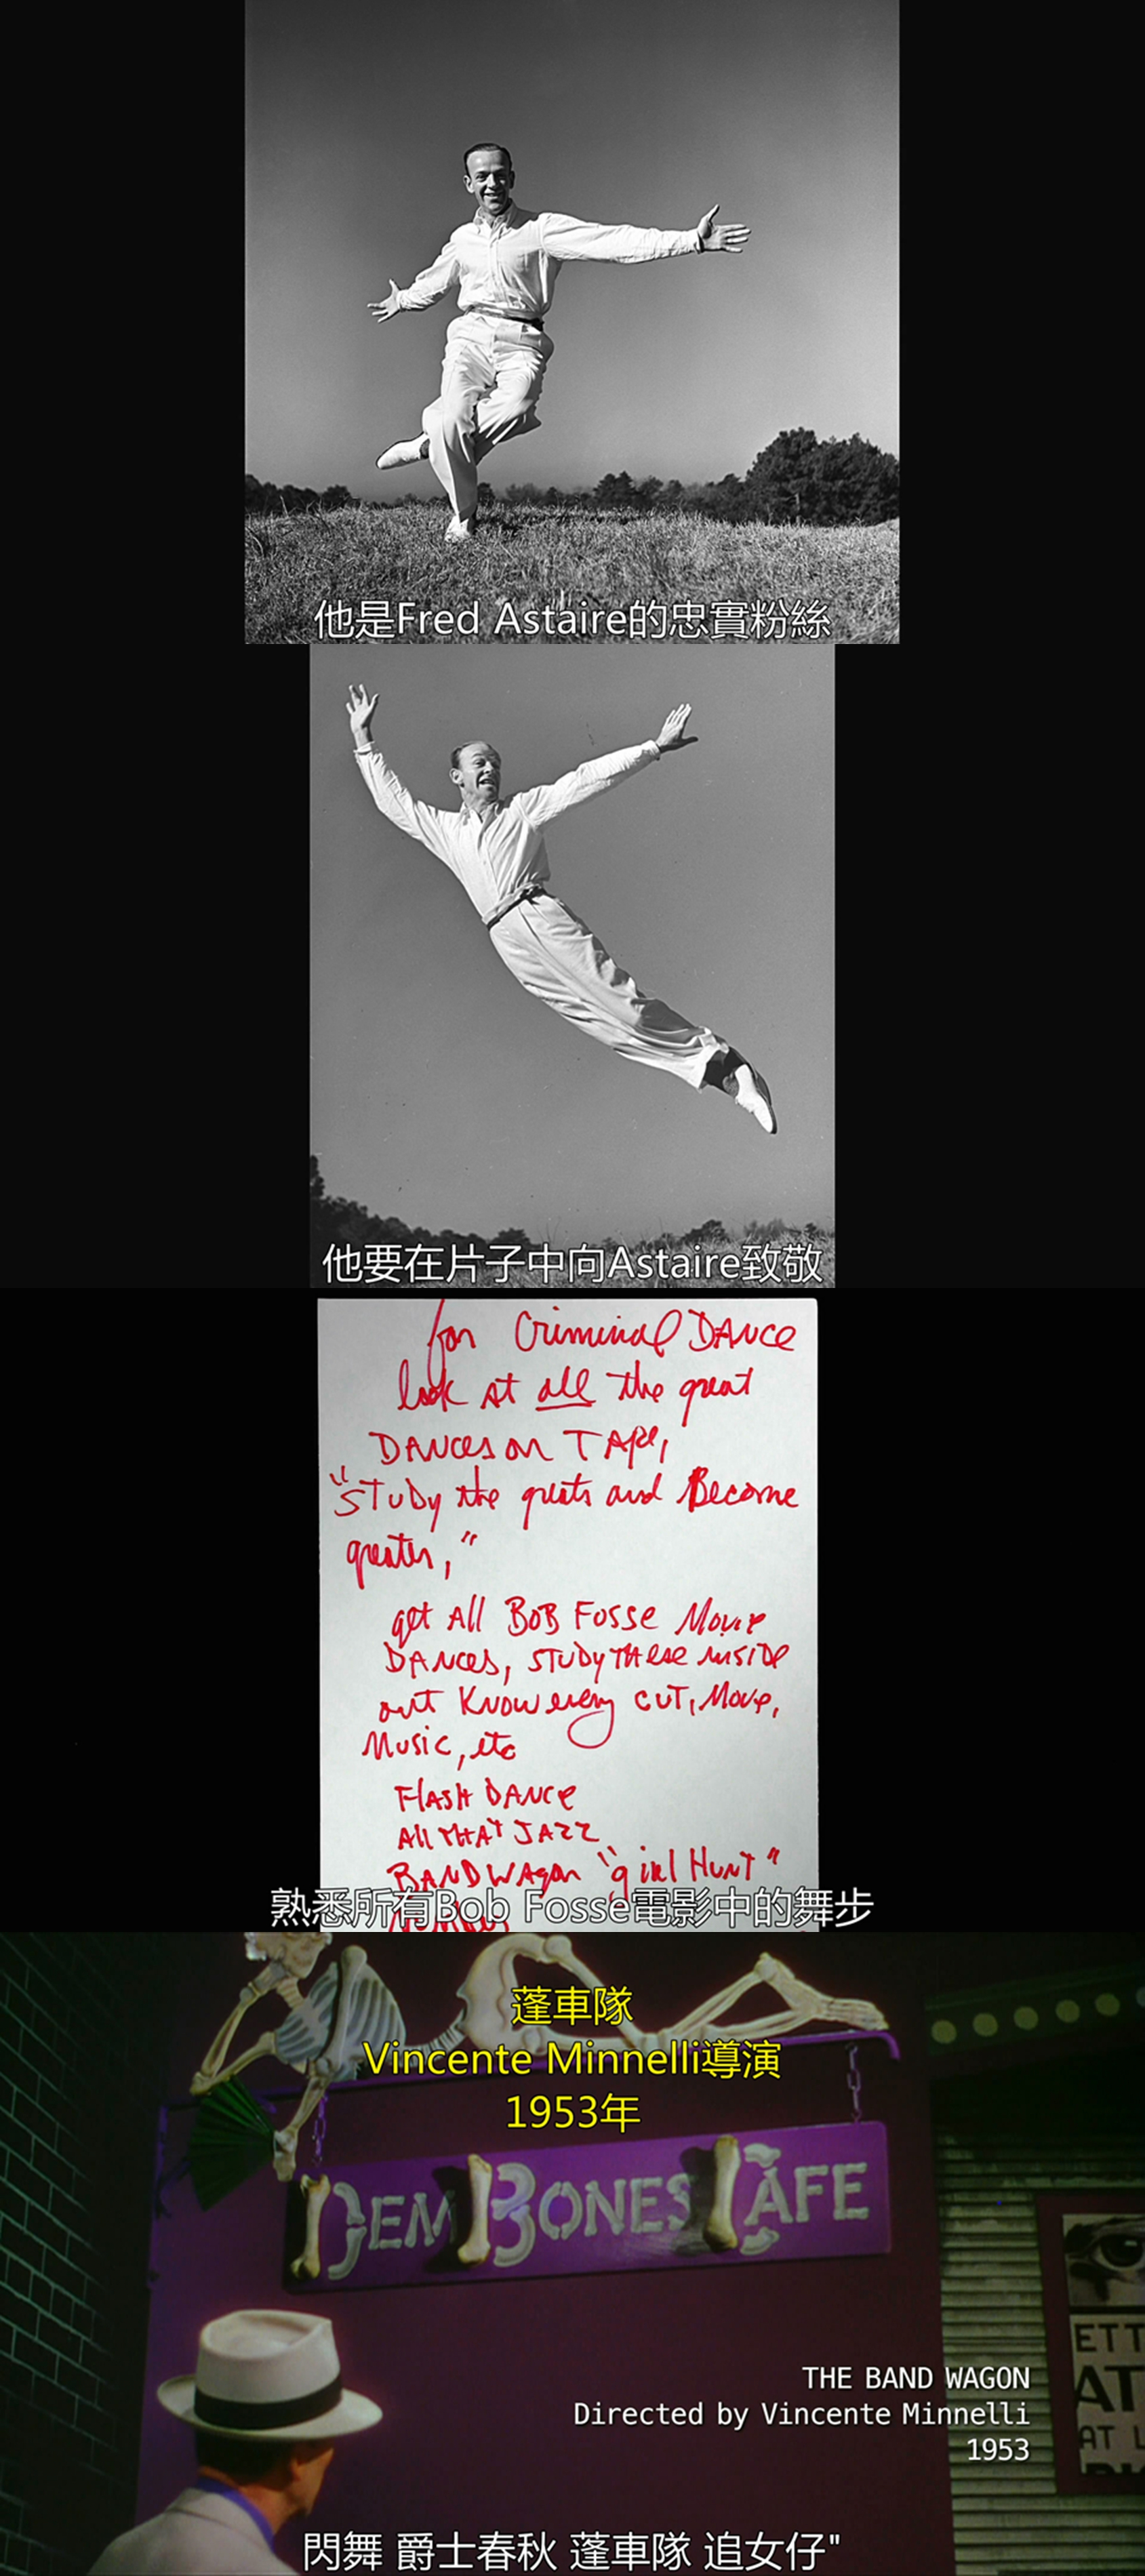 他是Fred Astaire的忠實粉絲
他要在片子中向Astaire致敬
for Criminal DANCE
look at all the great
DANCES on TAPE,
"STUDY the greats and Become
greater,"
get All BOB FOSSE Movie
DANCES, STUDY THESE inside
out Know every CUT, Move,
Music, etc
FLASH DANCE
All THAT JAZZ
BAND WAgon "girl HUNT"
熟悉所有Bob Fosse電影中的舞步
蓬車隊
Vincente Minnelli導演
1953年
DEM BONES CAFE
ETT
AT
AT L
THE BAND WAGON
Directed by Vincente Minnelli
1953
閃舞 爵士春秋 蓬車隊 追女仔"